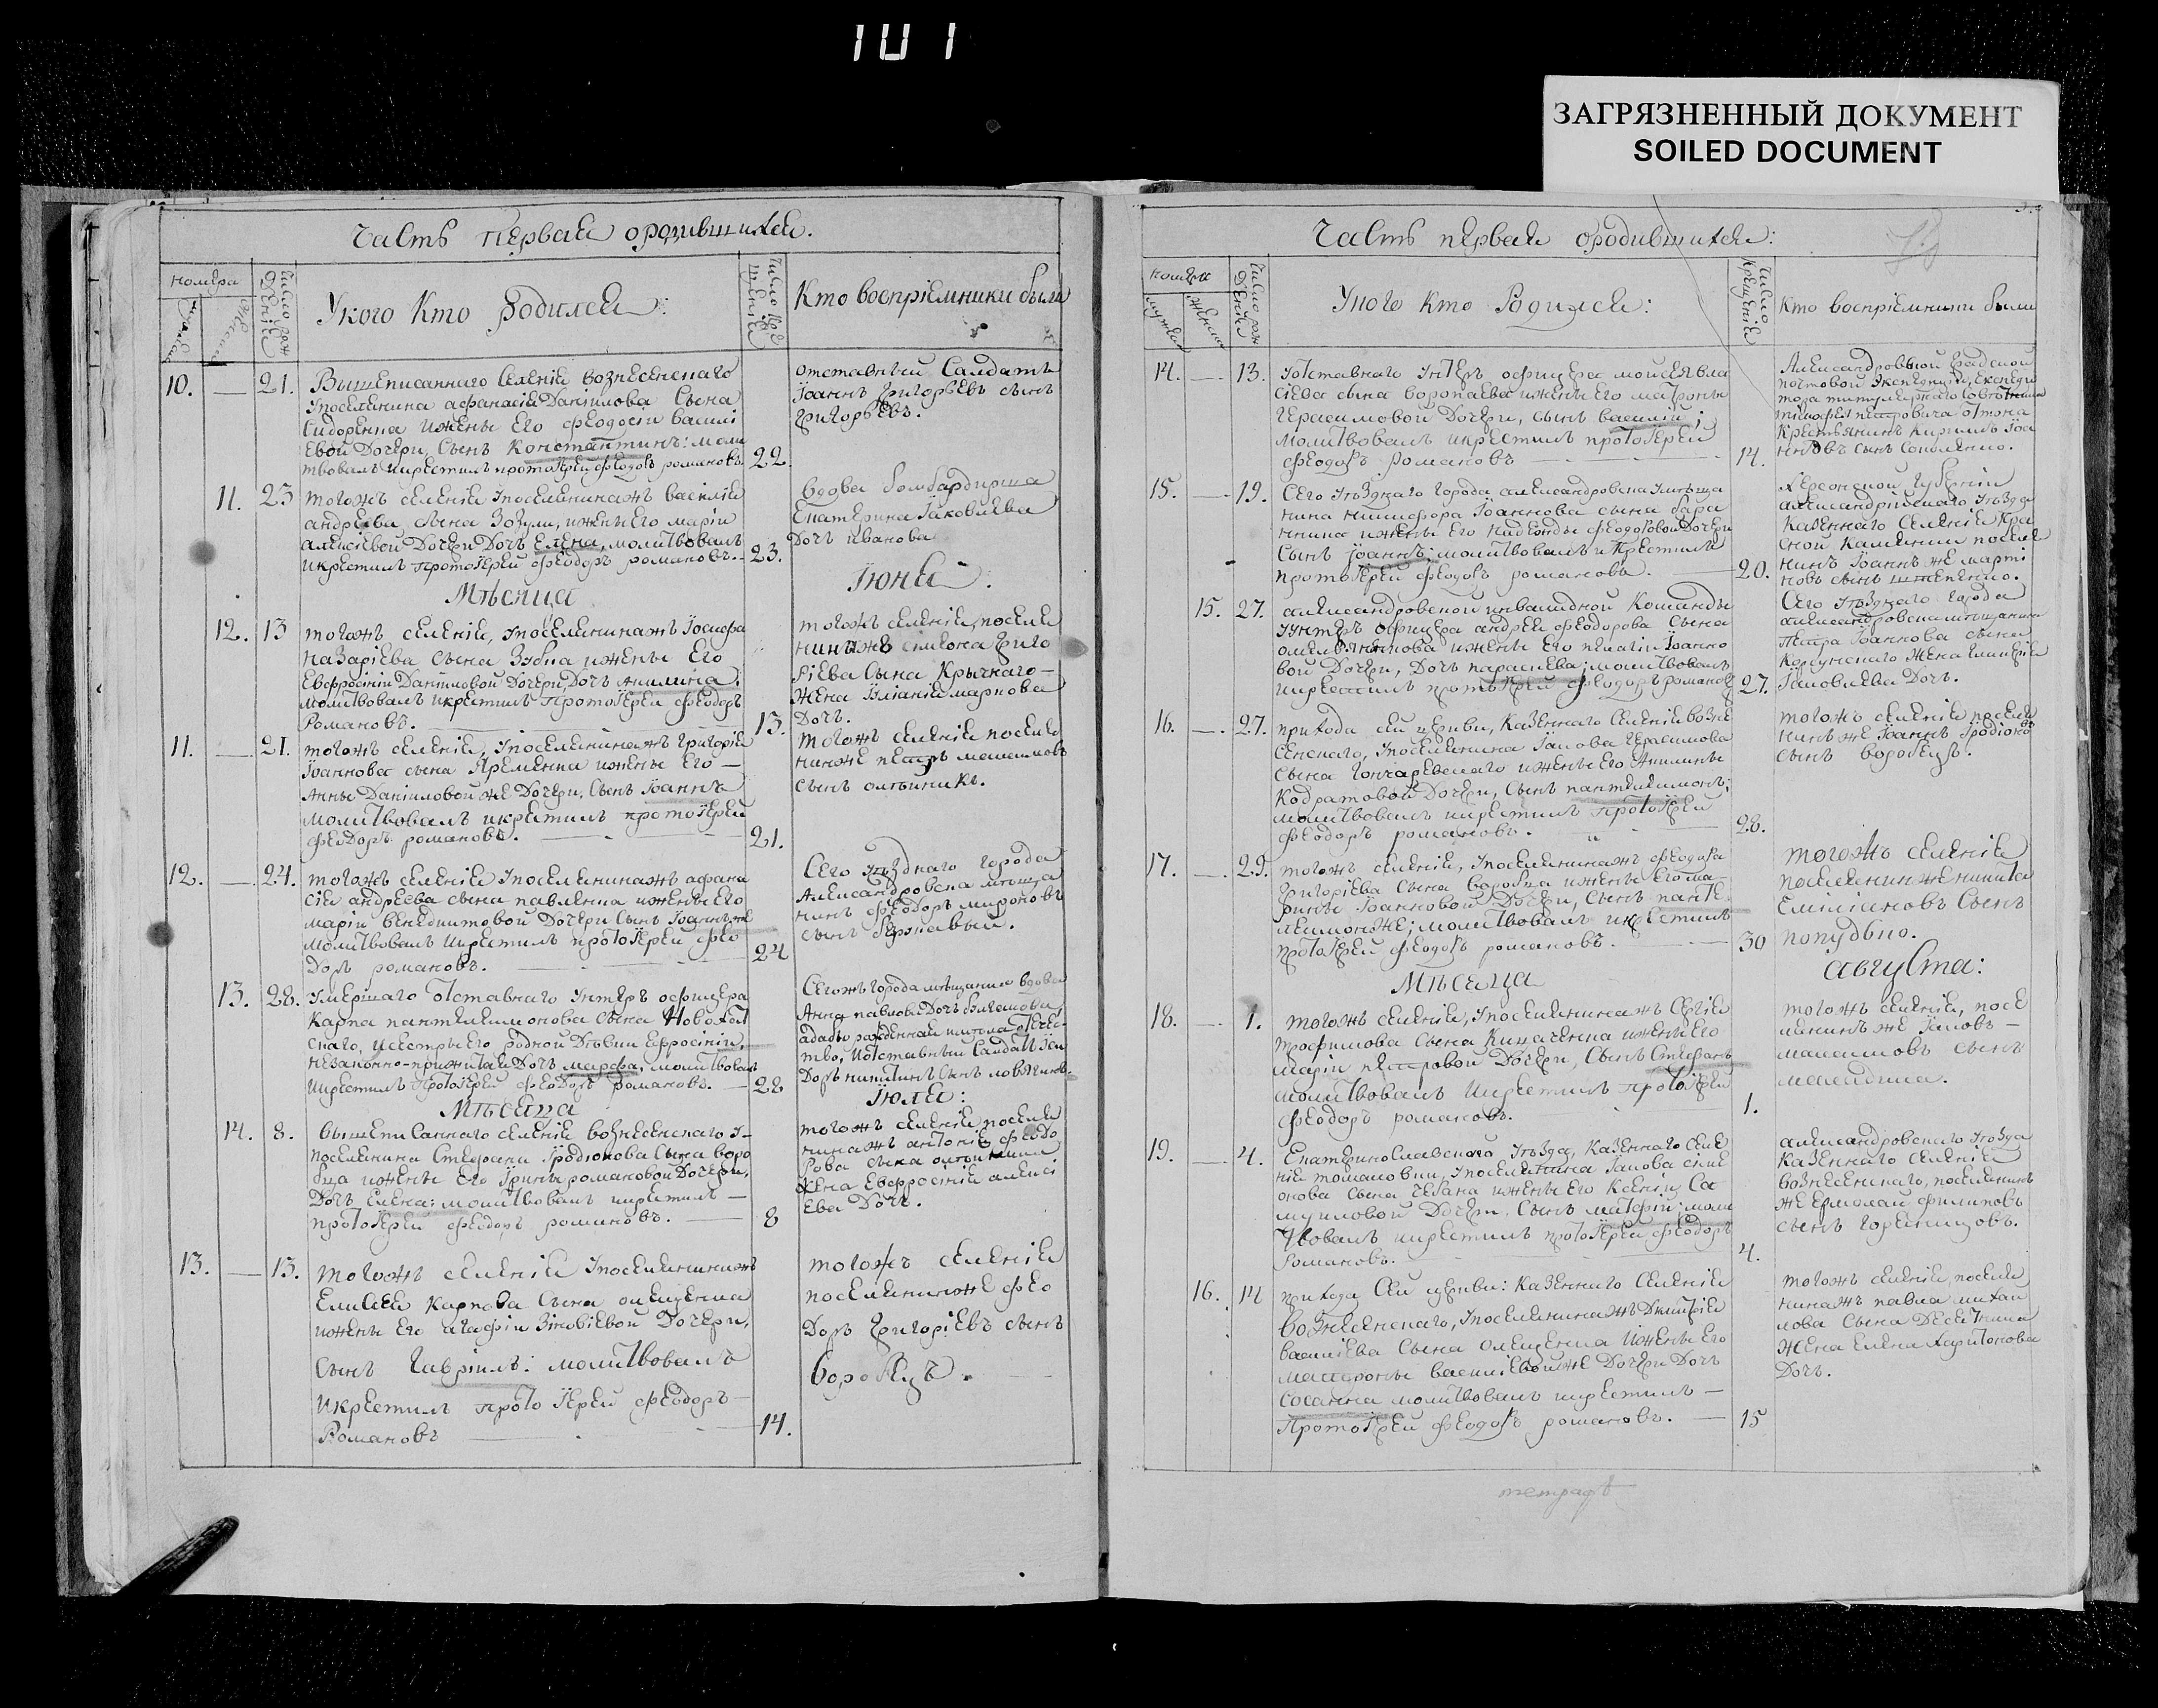 101
ЗАГРЯЗНЕННЫЙ ДОКУМЕНТ
SOILED DOCUMENT
Часть первая ородившихся.
номера
Укого Кто Родился:
Кто воспріемники были
10. — 21.
Вышеписаннаго Селенія вознесенскаго
Упоселянина афанасія Даніилова Сына
Сидоренка ижены Его феодосіи василі
евой Дочери, Сынъ Константинъ: моли
твовалъ икрестилъ протоіерей феодоръ романовъ.
22.
отставный Салдатъ
Іоаннъ Григорьевъ сынъ
Григорьевъ.
11. 23
тогожъ селенія Упоселянинажъ василія
андреева сына Зозули, ижены Его маріи
алексіевой Дочери Дочь Елена, молитвовалъ
икрестилъ протоіерей феодоръ романовъ.
23.
вдова бомбардирша
Екатерина Іаковлева
Дочь иванова
Мѣсяца Іюня:
12. 13
тогожъ селенія, Упоселянинажъ Іосифа
назаріева сына Зубка ижены Его
Евфросиніи Даніиловой Дочери, Дочь Акилина.
молитвовалъ икрестилъ протоіерей феодоръ
Романовъ.
13.
тогожъ селенія, поселя
нина
сына Крычкаго —
жена Іуліанія маркова
Дочь.
11. — 21.
тогожъ селенія, Упоселянинажъ Григорія
Іоаннова сына Яременка ижены Его —
Анны Даніиловой же Дочери, Сынъ Іоаннъ
молитвовалъ икрестилъ протоіерей
феодоръ романовъ.
21.
тогожъ селенія поселя
нинже петръ
сынъ олейникъ.
12. — 24.
тогожъ селенія Упоселянинажъ афана
сія андреева сына павленка ижены Его
маріи венедиктовой Дочери Сынъ Іоаннъ же
молитвовалъ икрестилъ протоіерей фео
доръ романовъ.
24
Сего уѣзднаго города
Александровска мѣща
нинъ феодоръ мироновъ
сынъ
13. 28.
Умершаго отставнаго Унтеръ офицера
Карпа пантелимонова сына
скаго, исестры Его родной Дѣвки Ефросиніи,
незаконно-прижитая Дочь марфа, молитвовалъ
икрестилъ протоіерей феодоръ романовъ.
28
Сегожъ города мѣщанина вдова
Анна павлова Дочь
иотставный Салдатъ Фео
доръ никитинъ сынъ
Мѣсяца Іюля:
14. 8.
вышеписаннаго селенія вознесенскаго У-
поселянина Стефана Іродіонова Сына воро
бца ижены Его Ірины романовой Дочери,
Дочь Елена: молитвовалъ икрестилъ —
протоіерей феодоръ романовъ.
8
тогожъ селенія, поселя
нинажъ антонія феодо
рова сына
жена Евфросинія алексі
ева Дочь.
13. — 13.
тогожъ селенія Упоселянинажъ
Елисея Карпова Сына олещенка
ижены Его агафіи Зіновіевой Дочери,
Сынъ Гавріилъ: молитвовалъ
Икрестилъ протоіерей феодоръ —
Романовъ
14.
тогожъ селенія
поселянинже фео
доръ Григоріевъ сынъ
воробецъ.
Часть первая ородившихся:
номера
Укого кто Родился:
Кто воспріемники были
14. — 13.
Уотставнаго Унтеръ офицера моисея вла
сіева сына воропаева ижены Его матроны
Герасимовой Дочери, сынъ василій;
молитвовалъ икрестилъ протоіерей
феодоръ романовъ
14.
Александровской градской
почтовой Экспедиціи, Экспеди
тора титулярнаго совѣтника
тимофея петровича
Крестьянинъ кириллъ Іоа
нновъ сынъ
15. — 19.
Сего Уѣзднаго города александровска Умѣща
нина никифора Іоаннова сына
ижены Его Надежды феодоровой Дочери
Сынъ Іоаннъ; молитвовалъ икрестилъ
протоіерей феодоръ романовъ.
20.
Херсонской Губерніи
александрійскаго Уѣзда
Казеннаго Селенія Кра
сной Каменки поселя
нинъ Іоаннъ же марті
новъ сынъ
15. 27.
александровской инвалидной Команды
Уунтеръ офицера андрея феодорова сына
ижены Его пелагіи Іоанно
вой Дочери, Дочь параскева; молитвовалъ
икрестилъ протоіерей феодоръ романовъ
27.
Сего Уѣзднаго города
александровска мѣщанина
петра Іоаннова сына
жена Гликерія
Іаковлева Дочь.
16. — 27.
прихода сей церкви, Казеннаго Селенія возне
сенскаго, Упоселянина Іакова Герасимова
Сына Гончаревскаго ижены Его Акилины
Кодратовой Дочери, сынъ пантелимонъ;
молитвовалъ икрестилъ протоіерей
феодоръ романовъ.
28.
тогожъ селенія поселя
нинъ же Іоаннъ Іродіоно
сынъ воробецъ.
17. — 29.
тогожъ селенія, Упоселянинажъ феодора
Григоріева Сына воробца ижены Его ма-
рины Іоанновой Дочери, Сынъ панте-
леимонже; молитвовалъ икрестилъ
протоіерей феодоръ романовъ.
30
тогожъ селенія
поселянинже никита
Сынъ
Мѣсяца августа:
18. — 1.
тогожъ селенія, Упоселянинажъ Сергія
трофимова Сына ижены Его
маріи петровой Дочери, Сынъ Стефанъ
молитвовалъ икрестилъ протоіерей
феодоръ романовъ.
1.
тогожъ селенія, посе
лянинъ же Іаковъ —
максимовъ сынъ
19. — 4.
Екатеринославскаго Уѣзда, Казеннаго Селе
нія томаковки, Упоселянина Іакова симе
онова Сына чабана ижены Его Ксеніи Са
муиловой Дочери, Сынъ матфій; моли
твовалъ икрестилъ протоіерей феодоръ
Романовъ.
4.
александровскаго Уѣзда
Казеннаго селенія
вознесенскаго, поселянинъ
же Ермолай филиповъ
сынъ
16. 14
прихода Сей церкви: Казеннаго Селенія
вознесенскаго, Упоселянинажъ Димитрія
василіева Сына олещенка ижены Его
матроны василіевойже Дочери Дочь
Сосанна молитвовалъ икрестилъ —
Протоіерей феодоръ романовъ.
15
тогожъ селенія, поселя
нинажъ павла михаи
лова Сына
жена Елена харитонова
Дочь.
тетрадь